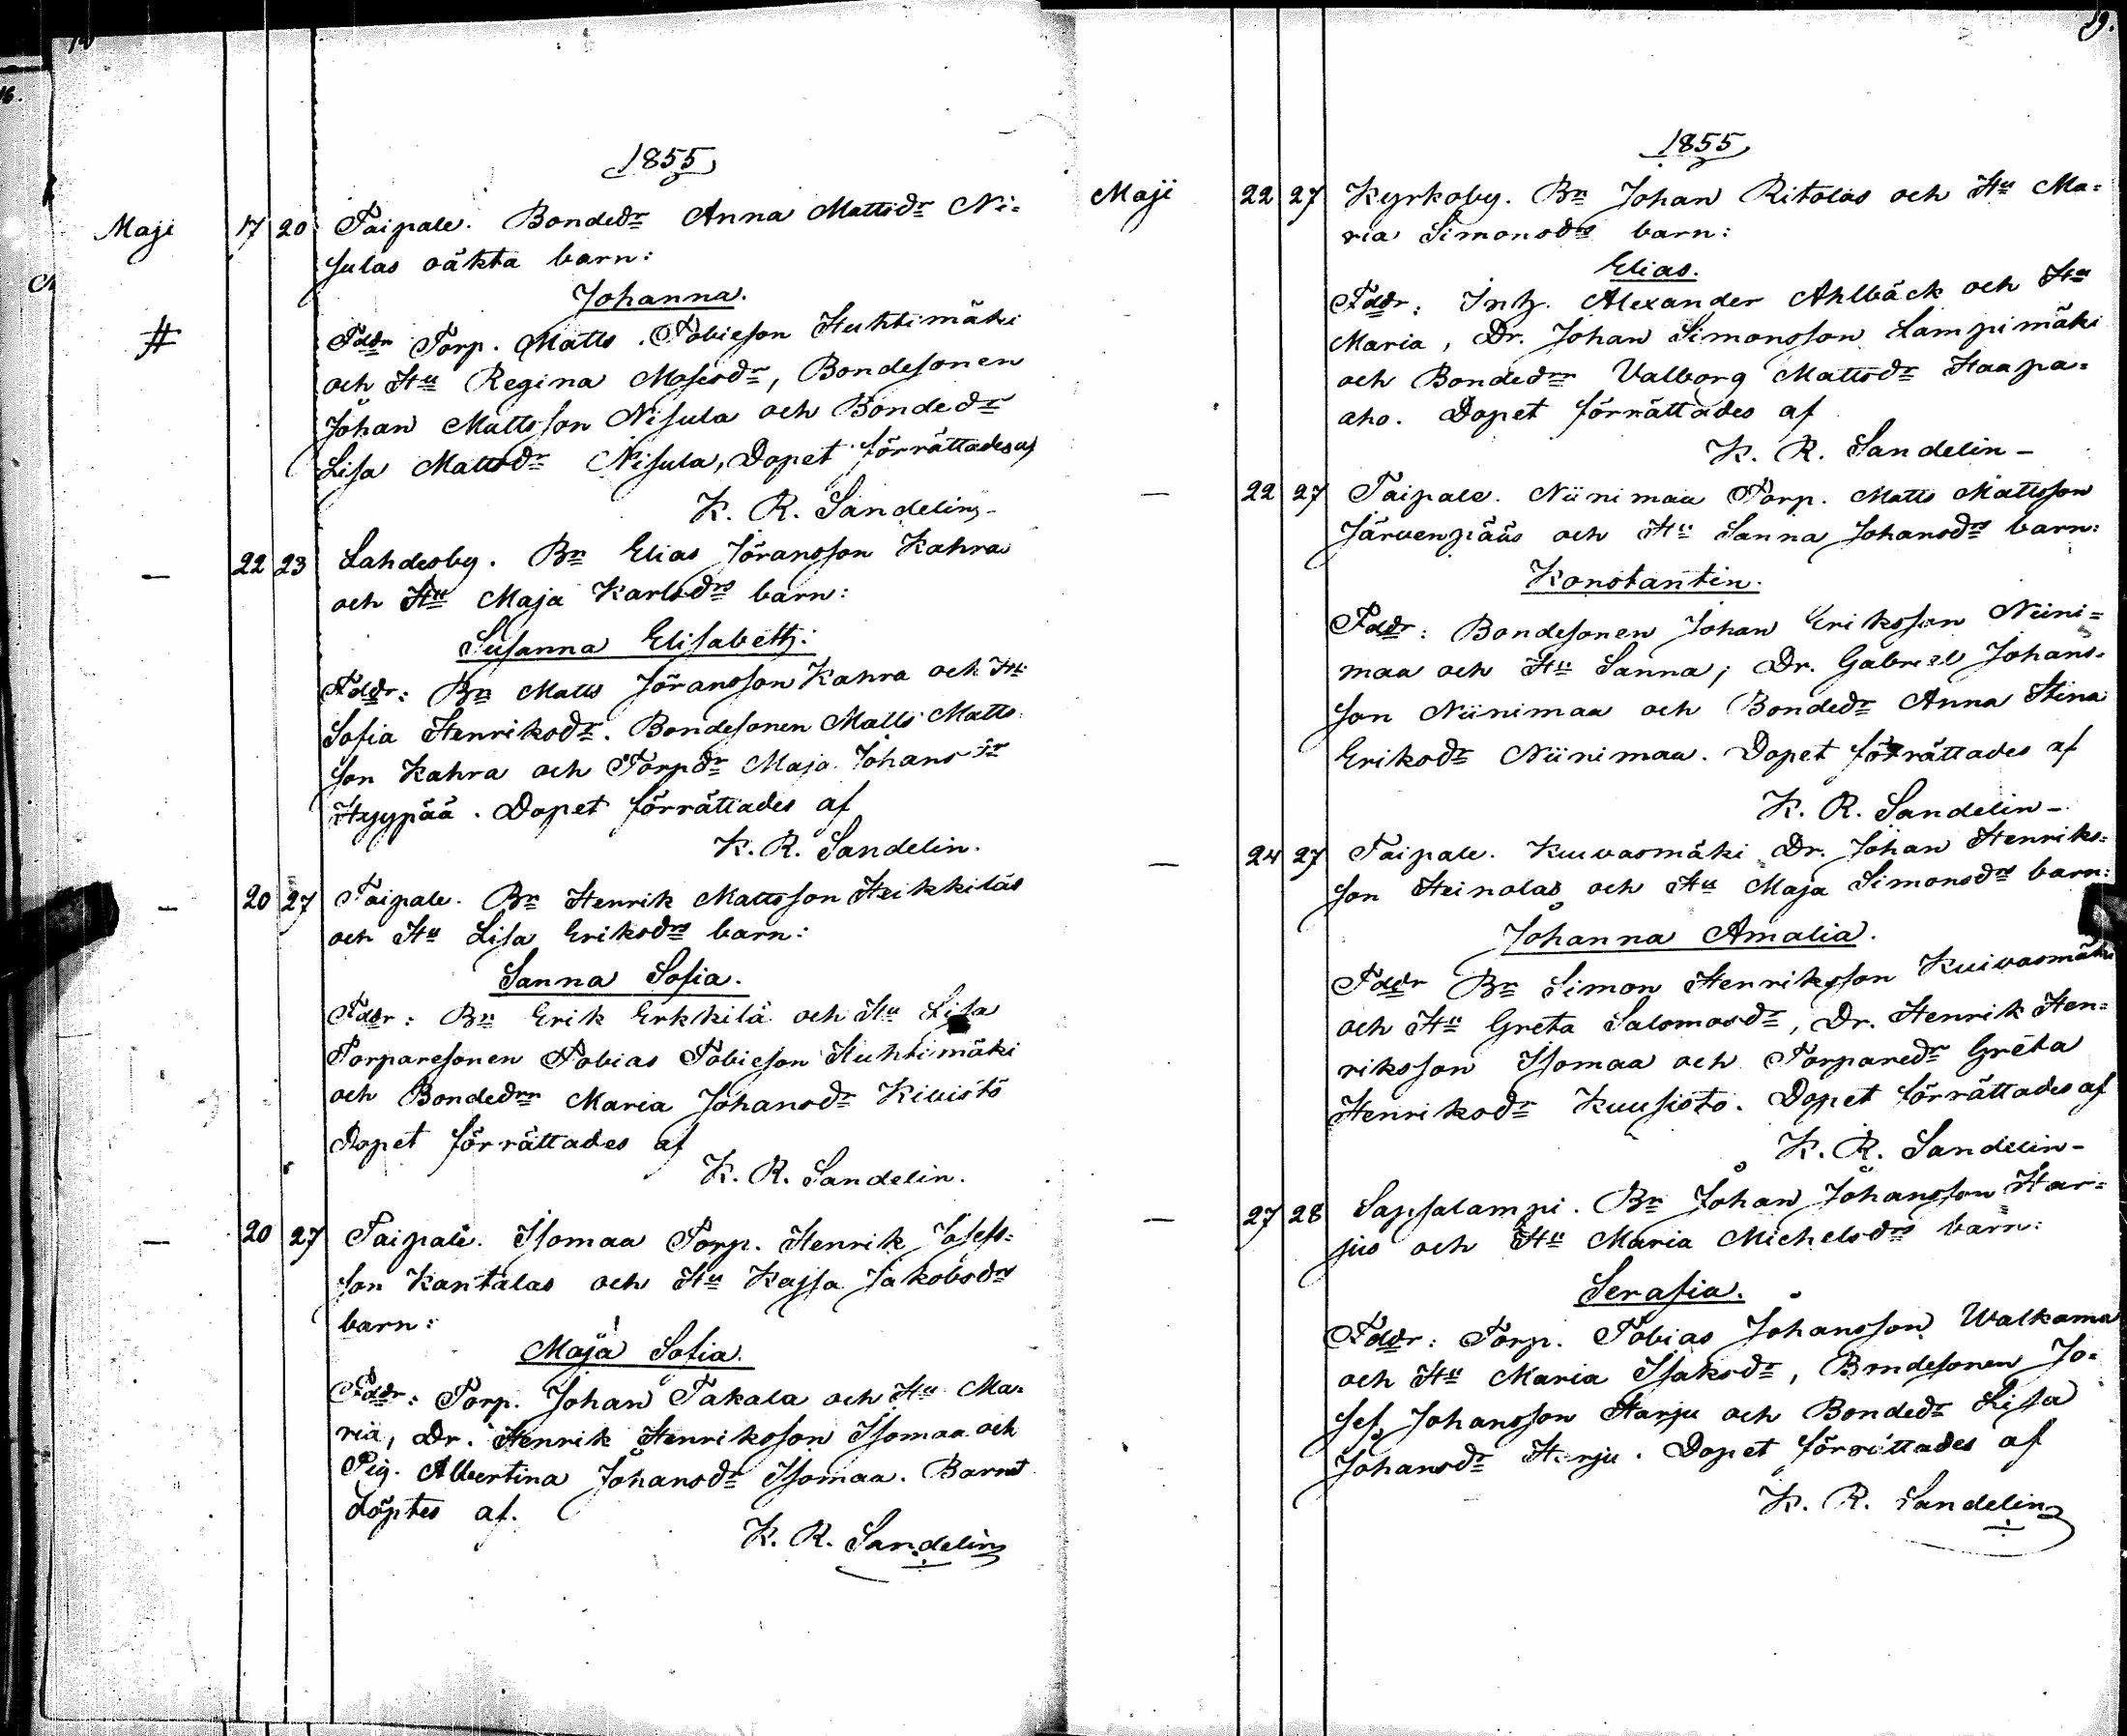 1855
Maji 17 20 Taipale. Bondedr Anna Mattsdr Ni=
sulas oäkta barn:
Johanna.
# Fddr Torp. Matts Tobieson Huhtimäki
och Hu Regina Mosesdr, Bondesonen
Johan Mattsson Nisula och Bondedr
Lisa Mattsdr Nisula, Dopet förrättades af
K. R. Sandelin
— 22 23 Lahdesby. Bn Elias Jöransson Kahra
och Hu Maja Karlsdrs barn:
Susanna Elisabeth:
Fddr: Bn Matts Jöransson Kahra och Hu
Sofia Henriksdr. Bondesonen Matts Matts
son Kahra och Torpdr Maja Johansdr
Hyypää. Dopet förrättades af
K. R. Sandelin.
— 20 27 Taipale. Bn Henrik Mattsson Heikkiläs
och Hu Lisa Eriksdrs barn:
Sanna Sofia.
Fddr: Bn Erik Erkkilä och Hu Lisa
Torparesonen Tobias Tobieson Huhtimäki
och Bondedrn Maria Johansdr Kivistö
Dopet förrättades af
K. R. Sandelin.
— 20 27 Taipale. Isomaa Torp. Henrik Josefs=
son Kantalas och Hu Kajsa Jakobsdrs
barn:
Maja Sofia.
Fddr: Torp. Johan Takala och Hu Ma=
ria, Dr. Henrik Henriksson Isomaa och
Pig. Albertina Johansdr Isomaa. Barnet
döptes af.
K. R. Sandelin
19.
1855
Maji 22 27 Kyrkoby. Bn Johan Ritolas och Hu Ma=
ria Simonsdrs barn:
Elias.
Fddr: Inh. Alexander Ahlbäck och Hu
Maria, Dr. Johan Simonsson Lampimäki
och Bondedrn Valborg Mattsdr Haapa=
aho. Dopet förrättades af
K. R. Sandelin –
— 22 27 Taipale. Niinimaa Torp. Matts Mattsson
Järvenpääs och Hu Sanna Johansdrs barn:
Konstantin.
Fddr: Bondesonen Johan Eriksson Niini=
maa och Hu Sanna; Dr. Gabriel Johans=
son Niinimaa och Bondedr Anna Stina
Eriksdr Niinimaa. Dopet förrättades af
K. R. Sandelin –
— 24 27 Taipale. Kuivasmäki Dr. Johan Henriks=
son Heinolas och Hu Maja Simonsdrs barn:
Johanna Amalia.
Fddr Bn Simon Henriksson Kuivasmäki
och Hu Greta Salomosdr, Dr. Henrik Hen=
riksson Isomaa och Torparedr Greta
Henriksdr Kuusisto. Dopet förrättades af
K. R. Sandelin –
— 27 28 Sapsalampi. Bn Johan Johansson Har=
jus och Hu Maria Michelsdrs barn:
Serafia.
Fddr: Torp. Tobias Johansson Walkama
och Hu Maria Isaksdr, Bondesonen Jo=
sef Johansson Harju och Bondedr Lisa
Johansdr Harju. Dopet förrättades af
K. R. Sandelin